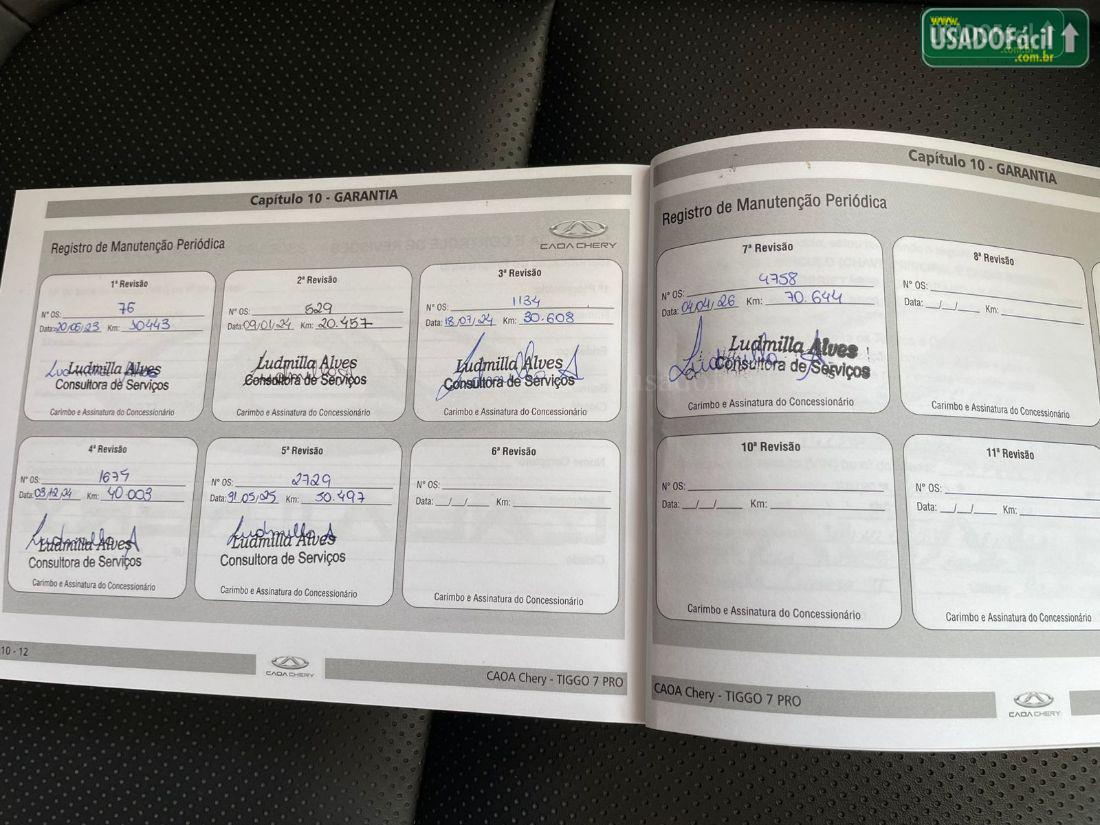 www.
USADOFácil
.com.br
Capítulo 10 - GARANTIA
Registro de Manutenção Periódica
CAOA CHERY
1ª Revisão
Nº OS: 76
Data: 20/06/23 Km: 10443
Ludmilla Alves
Consultora de Serviços
Carimbo e Assinatura do Concessionário
2ª Revisão
Nº OS: 629
Data: 09/01/24 Km: 20.457
Ludmilla Alves
Consultora de Serviços
Carimbo e Assinatura do Concessionário
3ª Revisão
Nº OS: 1134
Data: 18/07/24 Km: 30.608
Ludmilla Alves
Consultora de Serviços
Carimbo e Assinatura do Concessionário
4ª Revisão
Nº OS: 1679
Data: 03/12/24 Km: 40.003
Ludmilla Alves
Consultora de Serviços
Carimbo e Assinatura do Concessionário
5ª Revisão
Nº OS: 2729
Data: 31/05/25 Km: 50.497
Ludmilla Alves
Consultora de Serviços
Carimbo e Assinatura do Concessionário
6ª Revisão
Nº OS:
Data: __/__/__ Km:
Carimbo e Assinatura do Concessionário
10 - 12
CAOA CHERY
CAOA Chery - TIGGO 7 PRO
Capítulo 10 - GARANTIA
Registro de Manutenção Periódica
7ª Revisão
Nº OS: 4758
Data: 04/04/26 Km: 70.644
Ludmilla Alves
Consultora de Serviços
Carimbo e Assinatura do Concessionário
8ª Revisão
Nº OS:
Data: __/__/__ Km:
Carimbo e Assinatura do Concessionário
10ª Revisão
Nº OS:
Data: __/__/__ Km:
Carimbo e Assinatura do Concessionário
11ª Revisão
Nº OS:
Data: __/__/__ Km:
Carimbo e Assinatura do Concessionário
CAOA Chery - TIGGO 7 PRO
CAOA CHERY